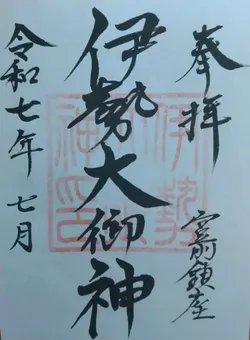 奉拝
宮前鎮座
伊勢大御神
令和七年 七月